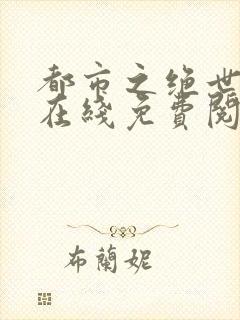 都市之绝世
在綫免費閱
布蘭妮